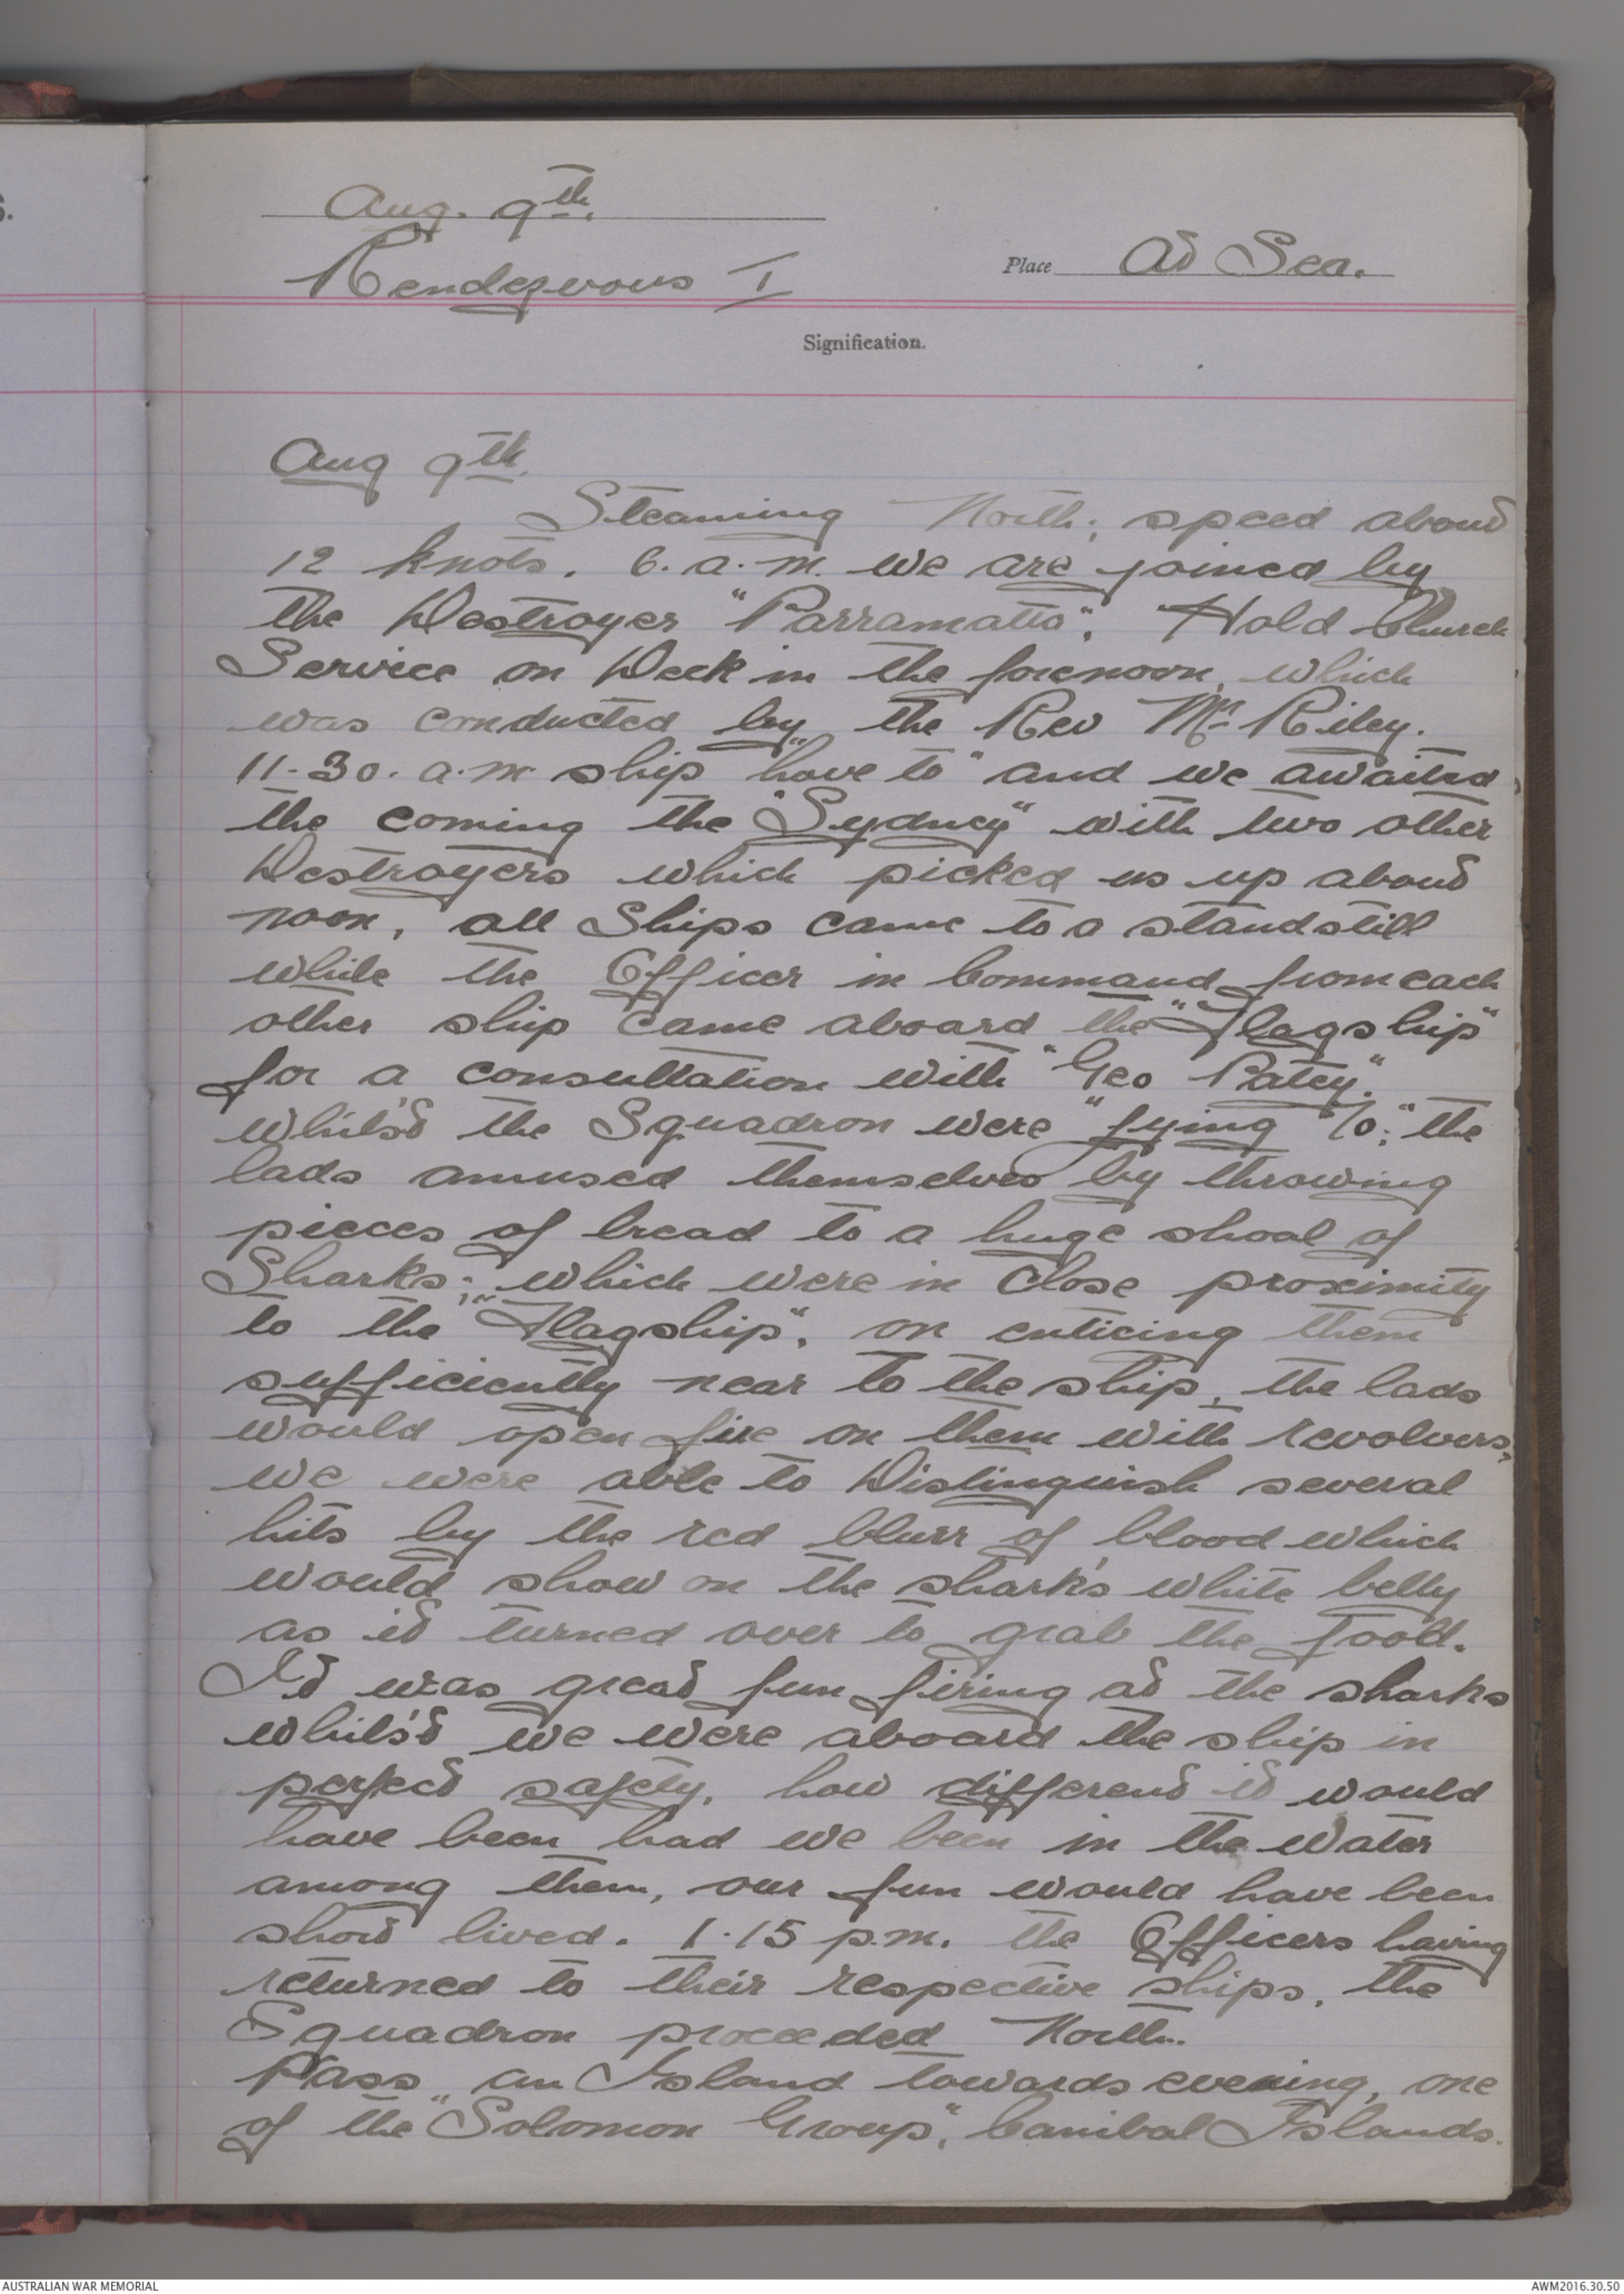 Aug. 9th.
Rendezvous I
Place At Sea.
Signification.
Aug 9th.
Steaming North; speed about
12 knots. 6. a.m. we are joined by
the Destroyer "Parramatta". Hold Church
Service on Deck in the forenoon, which
was conducted by the Rev Mr Riley.
11-30. a.m. ship "hove to" and we awaited
the coming the "Sydney" with two other
Destroyers which picked us up about
noon, all Ships came to a standstill
while the Officer in Command from each
other ship came aboard the "Flagship"
for a consultation with "Geo Patey".
whils't the Squadron were "lying To", the
lads amused themselves by throwing
pieces of bread to a huge shoal of
Sharks; which were in close proximity
to the "Flagship", on enticing them
sufficiently near to the ship, the lads
would open fire on them with revolvers,
we were able to Distinguish several
hits by the red blurr of blood which
would show on the shark's white belly
as it turned over to grab the food.
It was great fun firing at the sharks
whils't we were aboard the ship in
perfect safety, how different it would
have been had we been in the water
among them, our fun would have been
short lived. 1.15 p.m. the Officers having
returned to their respective ships, the
Squadron proceeded North.
Pass an Island towards evening, one
of the "Solomon Group", Canibal Islands.
AUSTRALIAN WAR MEMORIAL
AWM2016.30.50